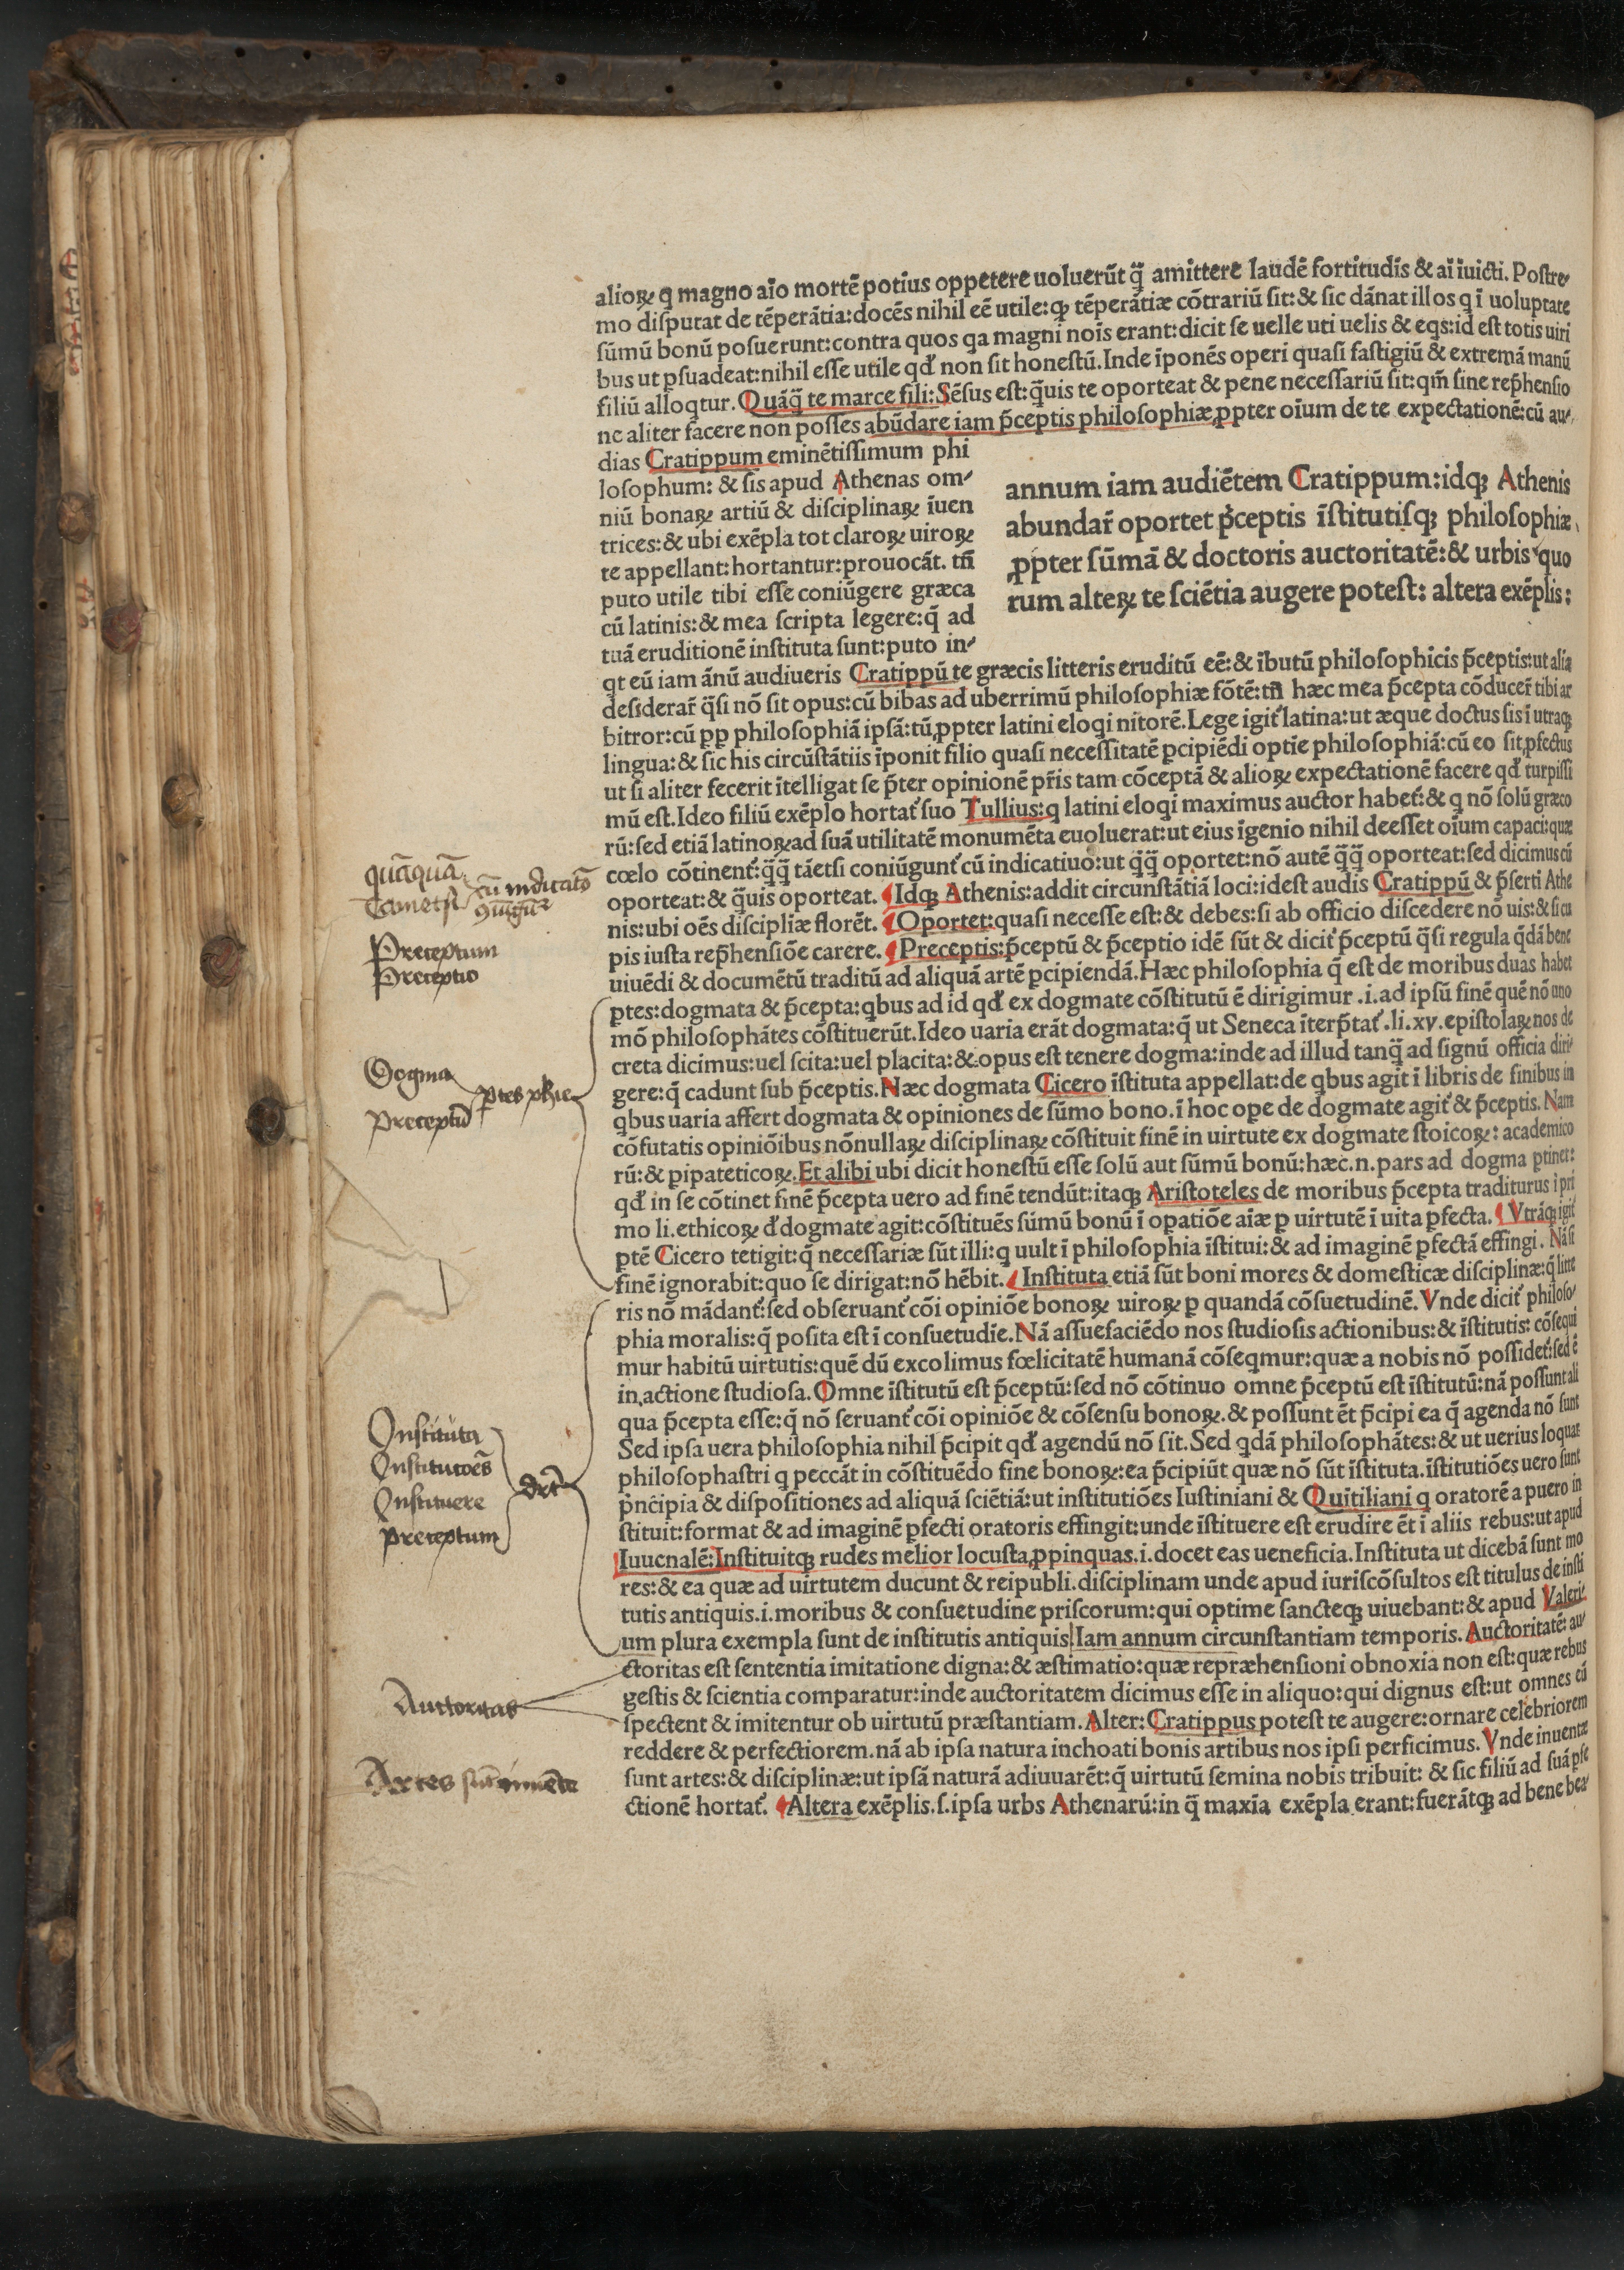 alioꝝ q magno aīo mortē potius oppetere uoluerūt q̄̃ amittere laudē fortitudis̄ & aī īuicti. Poſtre-
mo diſputat de tēperātia: docēs nihil eē utile: ꝙ tēperātiæ cōtrariū ſit: & ſic dānat illos q ī uoluptate
ſūmū bonū poſuerunt: contra quos qa magni nois̄ erant: dicit ſe uelle uti uelis & eqs: id eſt totis uiri
bus ut ꝑſuadeat: nihil eſſe utile qđ non ſit honeſtū. Inde īponēs operi quaſi faſtigiū & extremā manū
filiū alloqtur. Quāq̄̃ te marce fili: Sēſus eſt: q̄̃uis te oporteat & pene neceſſariū ſit: qm̄ ſine rep̄henſio
ne aliter facere non poſſes abūdare iam p̄ceptis philoſophiæ ꝓpter oīum de te expectationē: cū au-
dias Cratippum eminētiſſimum phi
loſophum: & ſis apud Athenas om-
niū bonaꝝ artiū & diſciplinaꝝ īuen
trices: & ubi exēpla tot claroꝝ uiroꝝ
te appellant: hortantur: prouocāt. tn̄
puto utile tibi eſſe coniūgere græca
cū latinis: & mea ſcripta legere: q̄ ad
tuā eruditionē inſtituta ſunt: puto in-
annum iam audiētem Cratippum: idqꝫ Athenis
abundar̄ oportet p̄ceptis īſtitutiſqꝫ philoſophiæ
ꝓpter ſūmā & doctoris auctoritatē: & urbis quo
rum alteꝝ te ſciētia augere poteſt: altera exēplis:
qt eū iam ānū audiueris Cratippū te græcis litteris eruditū eē: & ībutū philoſophicis p̄ceptis: ut alia
deſiderar̄ q̄̃ſi nō ſit opus: cū bibas ad uberrimū philoſophiæ fōtē: tn̄ hæc mea p̄cepta cōducer̄ tibi ar
bitror: cū ꝓp philoſophiā ipſā: tū ꝓpter latini eloqi nitorē. Lege igit̄ latina: ut æque doctus ſis ī utraqꝫ
lingua: & ſic his circūſtātiis īponit filio quaſi neceſſitatē ꝑcipiēdi optīe philoſophiā: cū eo ſit ꝑfectus
ut ſi aliter fecerit ītelligat ſe p̄ter opinionē pr̄is tam cōceptā & alioꝝ expectationē facere qđ turpiſſi
mū eſt. Ideo filiū exēplo hortat̄ ſuo Tullius: q latini eloqi maximus auctor habet̄: & q nō ſolū græco
rū: ſed etiā latinoꝝ ad ſuā utilitatē monumēta euoluerat: ut eius īgenio nihil deeſſet oīum capaci: quæ
cœlo cōtinent̄: q̄̃q̄̃ tāetſi coniūgunt̄ cū indicatiuo: ut q̄̃q̄̃ oportet: nō autē q̄̃q̄̃ oporteat: ſed dicimus cū
oporteat: & q̄̃uis oporteat. ¶ Idqꝫ Athenis: addit circunſtātiā loci: ideſt audis Cratippū & p̄ſerti Athe
nis: ubi oēs diſcipliæ florēt. ¶ Oportet: quaſi neceſſe eſt: & debes: ſi ab officio diſcedere nō uis: & ſi cu
pis iuſta rep̄henſiōe carere. ¶ Preceptis: p̄ceptū & p̄ceptio idē ſūt & dicit̄ p̄ceptū q̄̃ſi regula q̄dā bene
uiuēdi & documētū traditū ad aliquā artē ꝑcipiendā. Hæc philoſophia q̄ eſt de moribus duas habet
ꝑtes: dogmata & p̄cepta: qbus ad id qđ ex dogmate cōſtitutū ē dirigimur .i. ad ipſū finē quē nō uno
mō philoſophātes cōſtituerūt. Ideo uaria erāt dogmata: q̄ ut Seneca īterp̄tat̄ .li. xv. epiſtolaꝝ nos de
creta dicimus: uel ſcita: uel placita: & opus eſt tenere dogma: inde ad illud tanq̄̃ ad ſignū officia diri-
gere: q̄ cadunt ſub p̄ceptis. Næc dogmata Cicero īſtituta appellat: de qbus agit ī libris de finibus in
qbus uaria affert dogmata & opiniones de ſūmo bono. ī hoc oꝑe de dogmate agit̄ & p̄ceptis. Nam
cōfutatis opiniōibus nōnullaꝝ diſciplinaꝝ cōſtituit finē in uirtute ex dogmate ſtoicoꝝ: academico
rū: & ꝑipateticoꝝ. Et alibi ubi dicit honeſtū eſſe ſolū aut ſūmū bonū: hæc .n. pars ad dogma ꝑtinet:
qđ in ſe cōtinet finē p̄cepta uero ad finē tendūt: itaqꝫ Ariſtoteles de moribus p̄cepta traditurus ī pri
mo li. ethicoꝝ đ dogmate agit: cōſtituēs ſūmū bonū ī oꝑatiōe aīæ ꝑ uirtutē ī uita ꝑfecta. ¶ Vtrāqꝫ igit̄
ꝑtē Cicero tetigit: q̄ neceſſariæ ſūt illi: q uult ī philoſophia īſtitui: & ad imaginē ꝑfectā effingi. Nā ſi
finē ignorabit: quo ſe dirigat: nō hēbit. ¶ Inſtituta etiā ſūt boni mores & domeſticæ diſciplinæ: q̄ litte
ris nō mādant̄: ſed obſeruant̄ cōi opiniōe bonoꝝ uiroꝝ ꝑ quandā cōſuetudinē. Vnde dicit̄ philoſo-
phia moralis: q̄ poſita eſt ī conſuetudīe. Nā aſſuefaciēdo nos ſtudioſis actionibus: & īſtitutis: cōſequi
mur habitū uirtutis: quē dū excolimus fœlicitatē humanā cōſeqmur: quæ a nobis nō poſſidet̄: ſed ē
in actione ſtudioſa. Omne īſtitutū eſt p̄ceptū: ſed nō cōtinuo omne p̄ceptū eſt īſtitutū: nā poſſunt ali
qua p̄cepta eſſe: q̄ nō ſeruant̄ cōi opiniōe & cōſenſu bonoꝝ. & poſſunt ēt p̄cipi ea q̄ agenda nō ſunt
Sed ipſa uera philoſophia nihil p̄cipit qđ agendū nō ſit. Sed qdā philoſophātes: & ut uerius loquar
philoſophaſtri q peccāt in cōſtituēdo fine bonoꝝ: ea p̄cipiūt quæ nō ſūt īſtituta. īſtitutiōes uero ſunt
p̄ncipia & diſpoſitiones ad aliquā ſciētiā: ut inſtitutiōes Iuſtiniani & Quītiliani q oratorē a puero in
ſtituit: format & ad imaginē ꝑfecti oratoris effingit: unde īſtituere eſt erudire ēt ī aliis rebus: ut apud
Iuuenalē: Inſtituitqꝫ rudes melior locuſta ꝓpinquas .i. docet eas ueneficia. Inſtituta ut dicebā ſunt mo
res: & ea quæ ad uirtutem ducunt & reipubli. diſciplinam unde apud iuriſcōſultos eſt titulus de inſti
tutis antiquis .i. moribus & conſuetudine priſcorum: qui optime ſancteqꝫ uiuebant: & apud Valeri-
um plura exempla ſunt de inſtitutis antiquis. Iam annum circunſtantiam temporis. Auctoritatē: au-
ctoritas eſt ſententia imitatione digna: & æſtimatio: quæ repræhenſioni obnoxia non eſt: quæ rebus
geſtis & ſcientia comparatur: inde auctoritatem dicimus eſſe in aliquo: qui dignus eſt: ut omnes eū
ſpectent & imitentur ob uirtutū præſtantiam. Alter: Cratippus poteſt te augere: ornare celebriorem
reddere & perfectiorem. nā ab ipſa natura inchoati bonis artibus nos ipſi perficimus. Vnde inuentæ
ſunt artes: & diſciplinæ: ut ipſā naturā adiuuarēt: q̄ uirtutū ſemina nobis tribuit: & ſic filiū ad ſuā ꝑfe
ctionē hortat̄. ¶ Altera exēplis .ſ. ipſa urbs Athenarū: in q̄̃ maxīa exēpla erant: fuerātqꝫ ad bene bea-
quāquā
Tametſi
cū indicatō
9iūgūt̄
Preceptum
Preceptio
Dogma
Preceptū
ꝑtes phie
Inſtituta
Inſtitutoēs
Inſtituere
Preceptum
Auctoritas
Artes ſūt inuēte